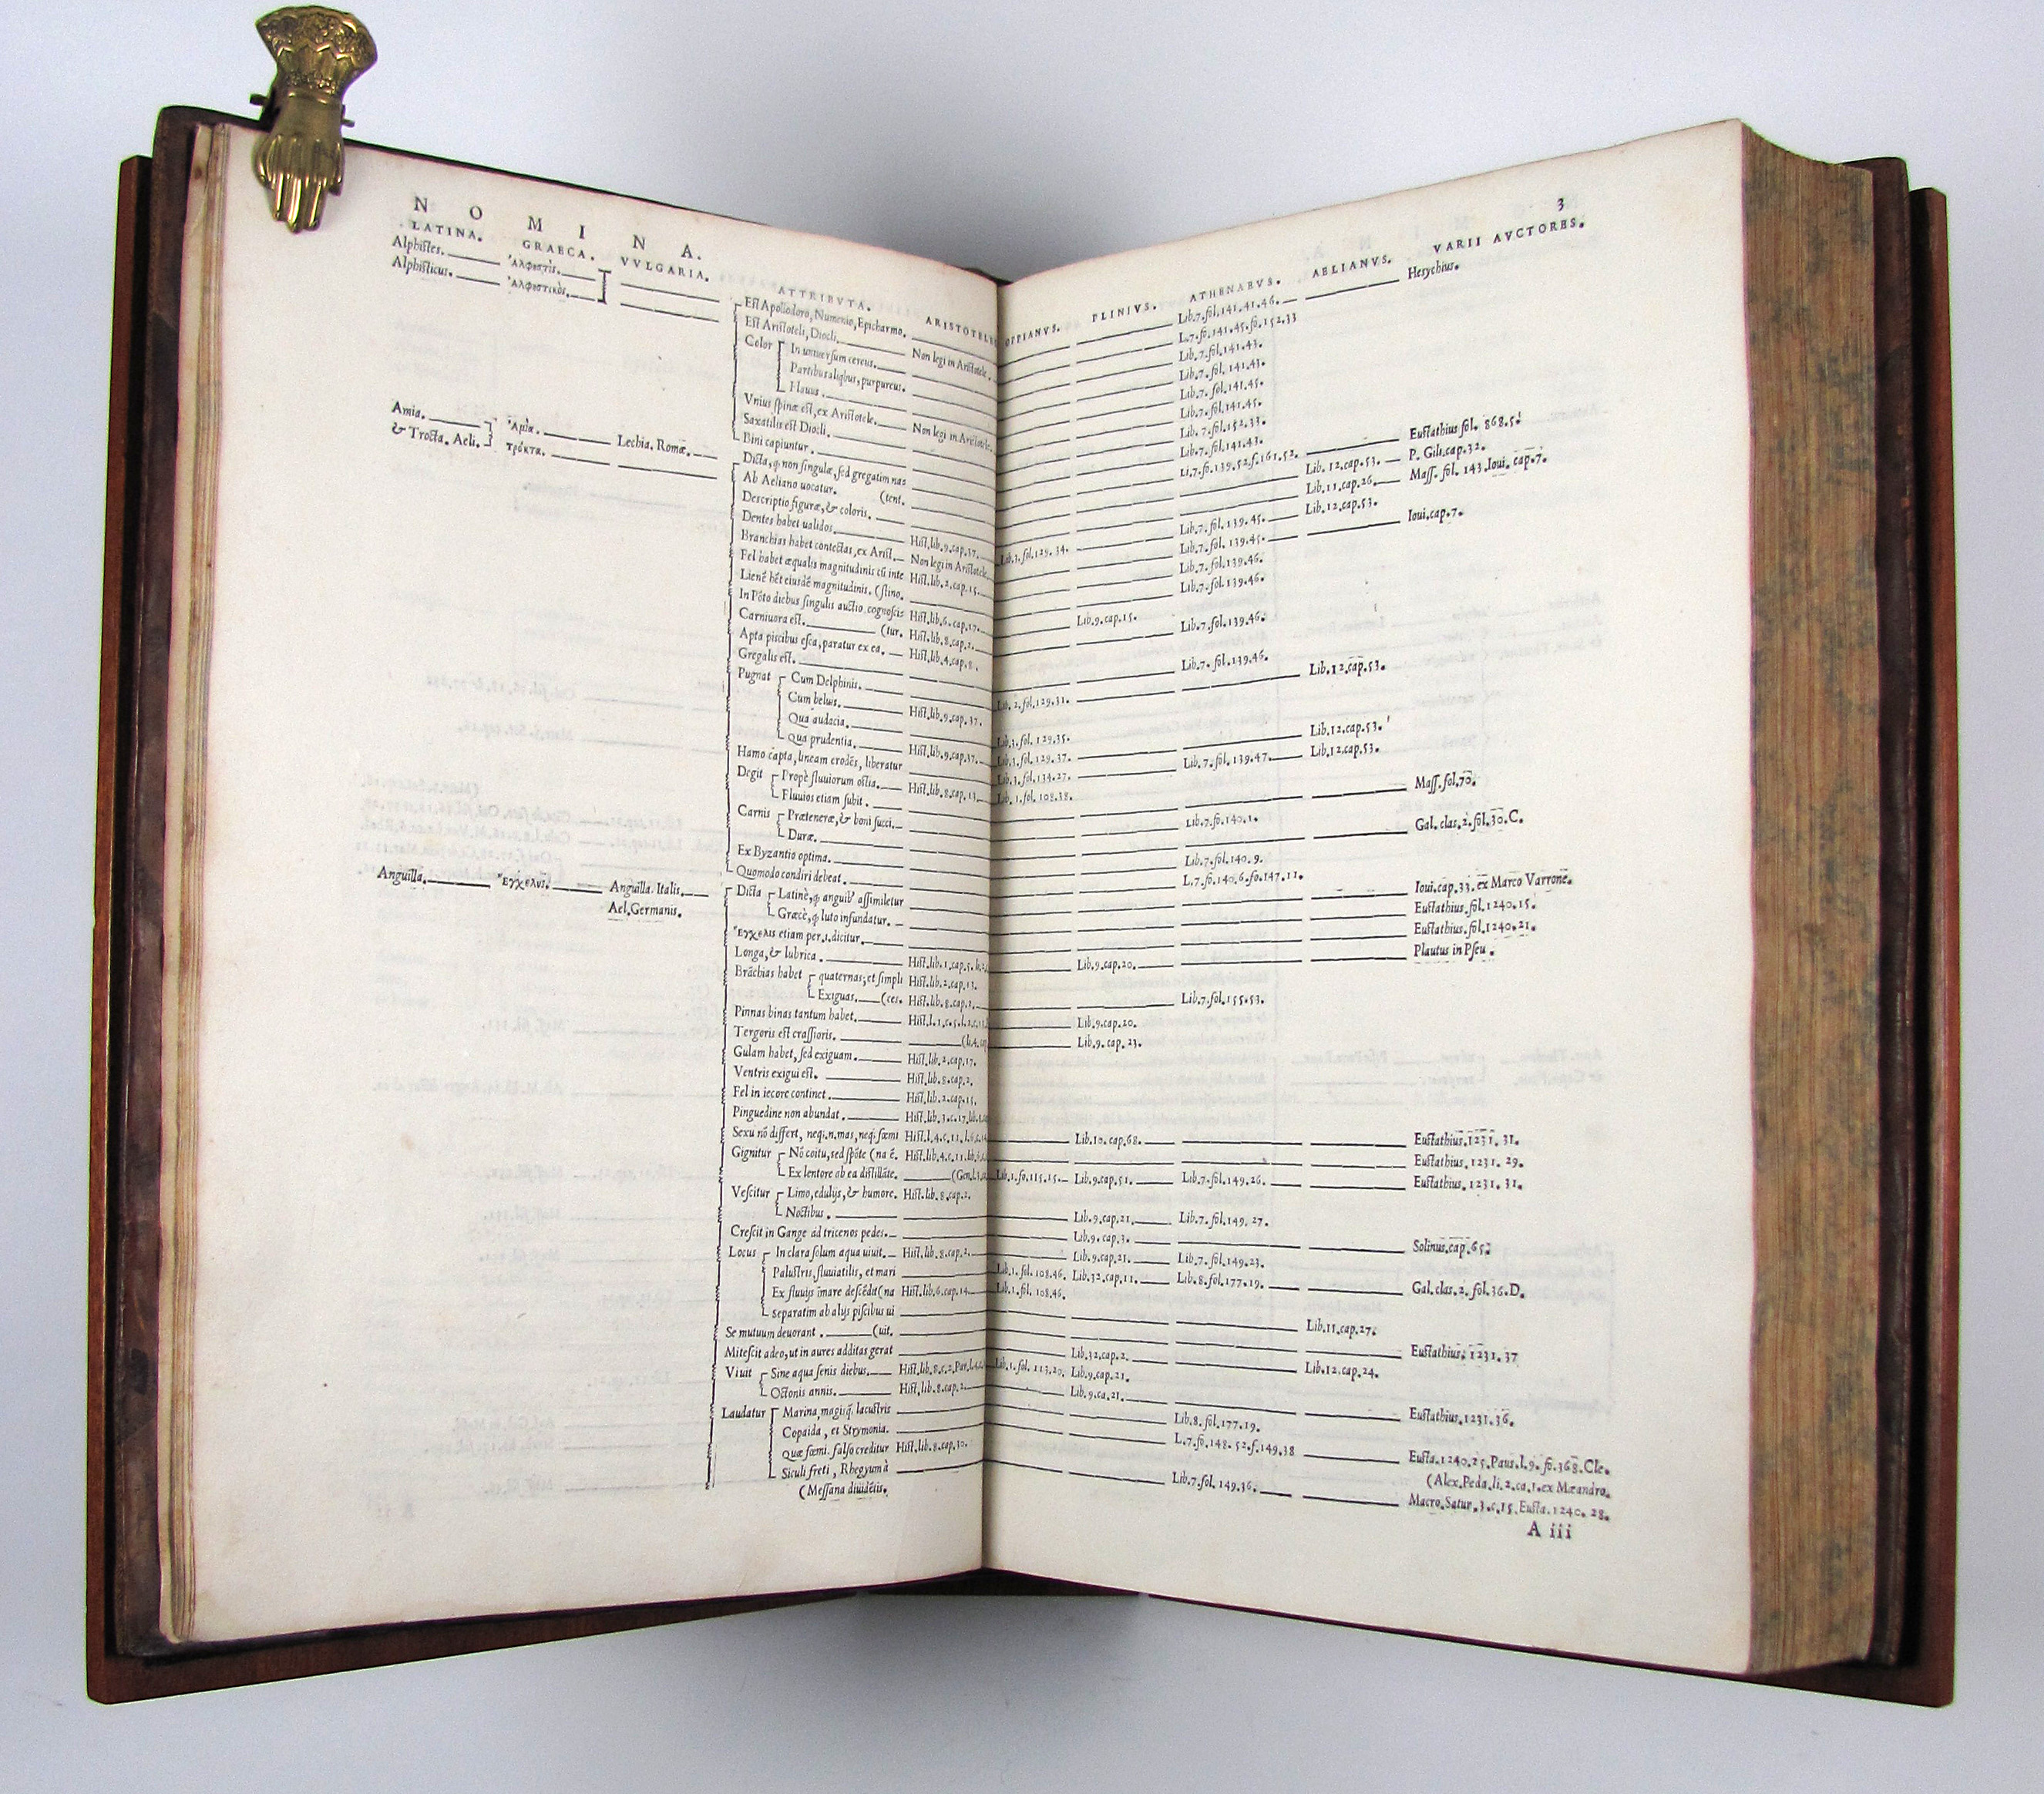 N O M I N A.
LATINA. GRAECA. VVLGARIA. ATTRIBVTA. ARISTOTELES
Alphiſtes. Ἀλφηστὴς.
Alphiſticus. Ἀλφηστικὸς.
Eſt Apollodoro, Numenio, Epicharmo.
Eſt Ariſtoteli, Diocli. Non legi in Ariſtotele.
Color In uniuerſum cereus.
Partibus aliqbus, purpureus.
Flauus.
Vnius ſpinæ eſt, ex Ariſtotele. Non legi in Ariſtotele.
Saxatilis eſt Diocli.
Bini capiuntur.
Amia. Ἀμία. Lechia. Romæ.
& Trocta. Aeli. τρόκτα.
Dicta, ꝙ non ſingulæ, ſed gregatim nas
Ab Aeliano uocatur. (tent.
Deſcriptio figuræ, & coloris.
Dentes habet ualidos. Hiſt.lib.9.cap.37.
Branchias habet contectas, ex Ariſt. Non legi in Ariſtotele.
Fel habet æqualis magnitudinis cū inte Hiſt.lib.2.cap.15.
Lienē hēt eiusdē magnitudinis. (ſtino.
In Pōto diebus ſingulis auctio cognoſci Hiſt.lib.6.cap.17.
Carniuora eſt. (tur. Hiſt.lib.8.cap.2.
Apta piſcibus eſca, paratur ex ea. Hiſt.lib.4.cap.8.
Gregalis eſt.
Pugnat Cum Delphinis.
Cum beluis. Hiſt.lib.9.cap.37.
Qua audacia.
Qua prudentia. Hiſt.lib.9.cap.37.
Hamo capta, lineam erodēs, liberatur
Degit Propè fluuiorum oſtia. Hiſt.lib.8.cap.13.
Fluuios etiam ſubit.
Carnis Præteneræ, & boni ſucci.
Duræ.
Ex Byzantio optima.
Quomodo condiri debeat.
Anguilla. Ἔγχελυς. Anguilla. Italis.
Ael. Germanis.
Dicta Latinè, ꝙ anguib' aſſimiletur
Græcè, ꝙ luto infundatur.
Ἔγχελις etiam per.ι.dicitur.
Longa, & lubrica. Hiſt.lib.1.cap.5.
Brāchias habet quaternas, et ſimpli Hiſt.lib.2.cap.13.
Exiguas. (ces. Hiſt.lib.8.cap.2.
Pinnas binas tantum habet.
Tergoris eſt craſſioris.
Gulam habet, ſed exiguam. Hiſt.lib.2.cap.17.
Ventris exigui eſt. Hiſt.lib.8.cap.2.
Fel in iecore continet. Hiſt.lib.2.cap.15.
Pinguedine non abundat. Hiſt.lib.3.c.17.
Sexu nō differt, neq;.n.mas, neq; fœmi
Gignitur Nō coitu, ſed ſpōte (na ē. Hiſt.lib.4.c.11.
Ex lentore ab ea diſtillāte.
Veſcitur Limo, edulijs, & humore. Hiſt.lib.8.cap.2.
Noctibus.
Creſcit in Gange ad tricenos pedes.
Locus In clara ſolum aqua uiuit. Hiſt.lib.8.cap.2.
Paluſtris, fluuiatilis, et mari
Ex fluuijs īmare deſcēdāt (na Hiſt.lib.6.cap.14.
Separatim ab alijs piſcibus ui
Se mutuum deuorant. (uit.
Miteſcit adeo, ut in aures additas gerat
Viuit Sine aqua ſenis diebus. Hiſt.lib.8.c.2.
Octonis annis. Hiſt.lib.8.cap.2.
Laudatur Marina, magisq; lacuſtris
Copaida, et Strymonia.
Quæ fœmi. falſo creditur Hiſt.lib.8.cap.30.
Siculi freti, Rhegyum à
(Meſſana diuidētis.
3
OPPIANVS. PLINIVS. ATHENAEVS. AELIANVS. VARII AVCTORES.
Lib.7.fol.141.41.46. Heſychius.
L.7.fo.141.45.fo.152.33
Lib.7.fol.141.43.
Lib.7.fol.141.43.
Lib.7.fol.141.45.
Lib.7.fol.141.45.
Lib.7.fol.152.33.
Lib.7.fol.141.43.
Li.7.fo.139.52.f.161.52. Euſtathius fol. 868.5.
Lib.12.cap.53. P. Gili.cap.32.
Lib.11.cap.26. Maſſ. fol. 143. Ioui. cap.7.
Lib.7.fol.139.45. Lib.12.cap.53.
Lib.3.fol.129.34. Lib.7.fol.139.45. Ioui.cap.7.
Lib.7.fol.139.46.
Lib.7.fol.139.46.
Lib.9.cap.15. Lib.7.fol.139.46.
Lib.7.fol.139.46.
Lib.2.fol.129.31. Lib.12.cap.53.
Lib.3.fol.129.35.
Lib.3.fol.129.37. Lib.12.cap.53.
Lib.3.fol.134.27. Lib.7.fol.139.47. Lib.12.cap.53.
Lib.1.fol.108.38. Maſſ.fol.70.
Lib.7.fo.140.1.
Gal.clas.2.fol.30.C.
Lib.7.fol.140.9.
L.7.fo.140.6.fo.147.11.
Ioui.cap.33. ex Marco Varrone.
Euſtathius.fol.1240.15.
Euſtathius.fol.1240.21.
Lib.9.cap.20. Plautus in Pſeu.
Lib.7.fol.155.53.
Lib.9.cap.20.
Lib.9.cap.23.
Lib.10.cap.68. Euſtathius.1231.31.
Euſtathius.1231.29.
Lib.1.fo.115.15. Lib.9.cap.51. Lib.7.fol.149.26. Euſtathius.1231.31.
Lib.9.cap.21. Lib.7.fol.149.27.
Lib.9.cap.3. Solinus.cap.65.
Lib.9.cap.21. Lib.7.fol.149.23.
Lib.1.fol.108.46. Lib.32.cap.11. Lib.8.fol.177.19. Gal.clas.2.fol.36.D.
Lib.1.fol.108.46.
Lib.11.cap.27.
Lib.32.cap.2. Euſtathius.1231.37
Lib.1.fol.113.20. Lib.9.cap.21. Lib.12.cap.24.
Lib.9.ca.21.
Euſtathius.1231.36.
Lib.8.fol.177.19.
L.7.fo.148.52.f.149.38 Euſta.1240.25.Paus.l.9.fo.368.Cle.
(Alex.Peda.li.2.ca.1.ex Mæandro.
Lib.7.fol.149.36. Macro.Satur.3.c.15.Euſta.1240.28.
A iii